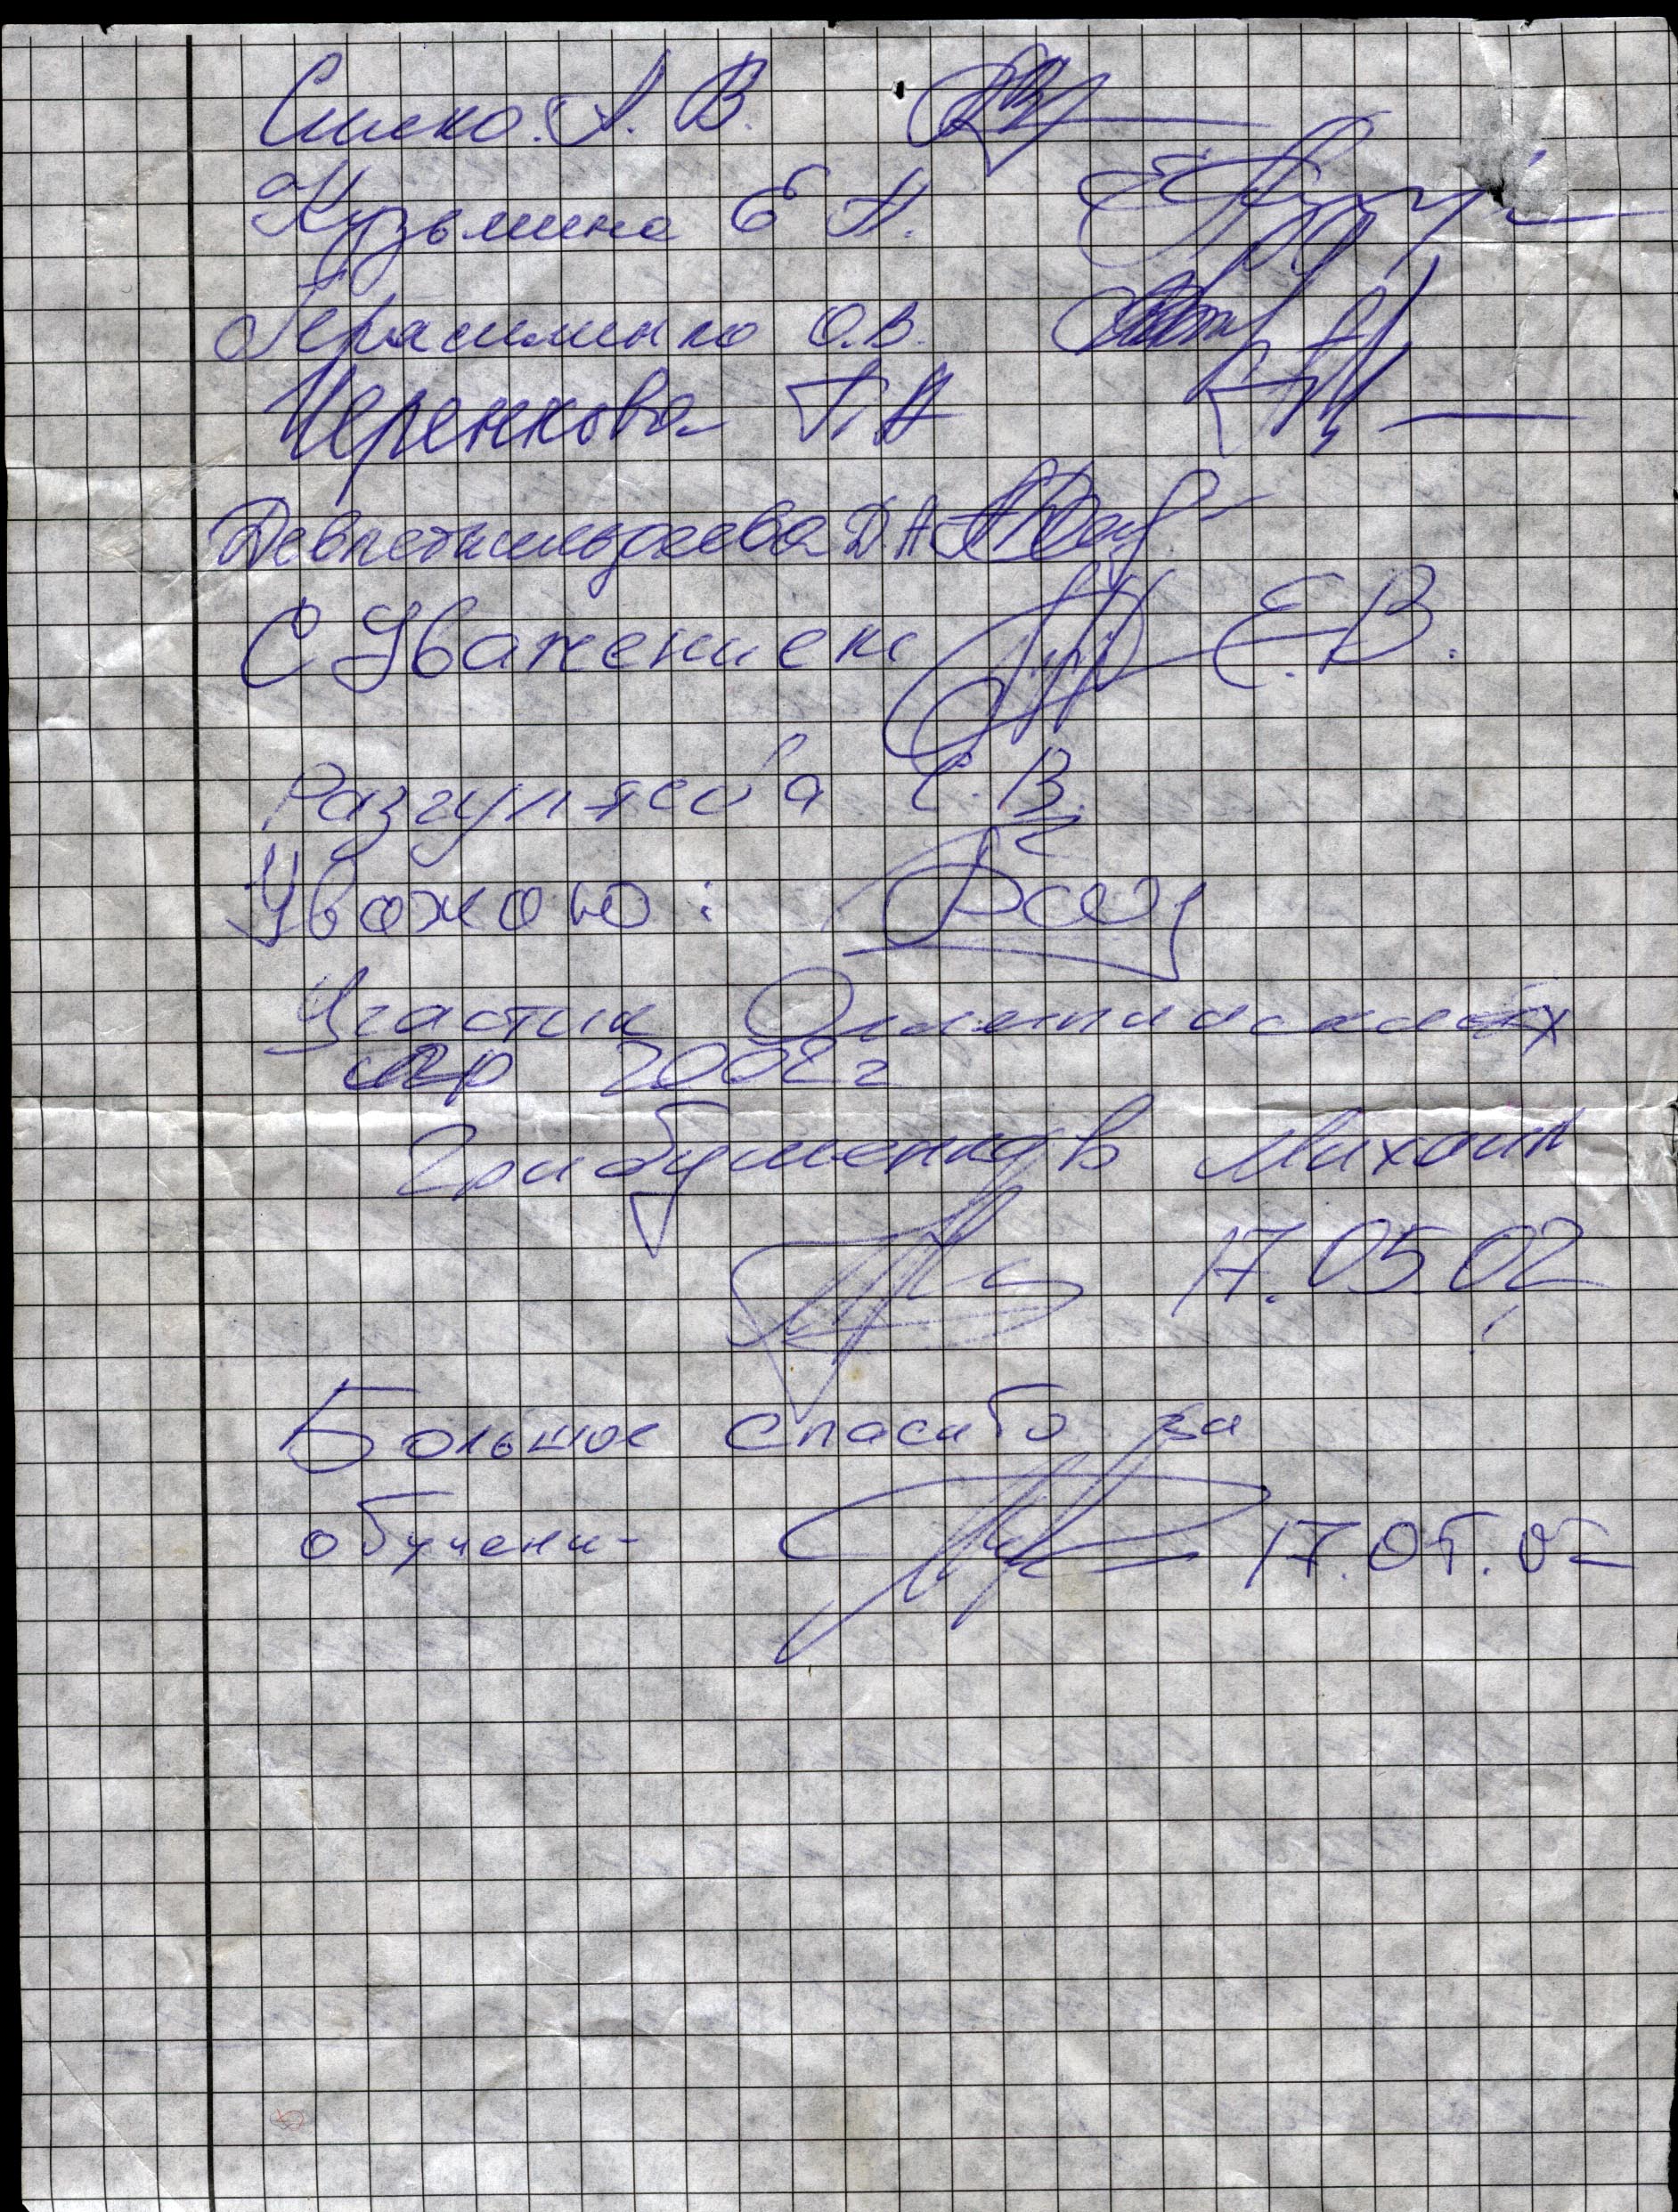 Сииско. А. В.
Кузьмина Е А.
Герасименко О.В.
Черенкова Т.А
Девлеткильдеева Д А
С Уважением Е.В.
Разгуляева Е.В.
Уважаю:
Участик Олимпийских
игр 2002 г
Грибушенков Михаил
17.05.02
Большое спасибо за
обучени- 17.05.02